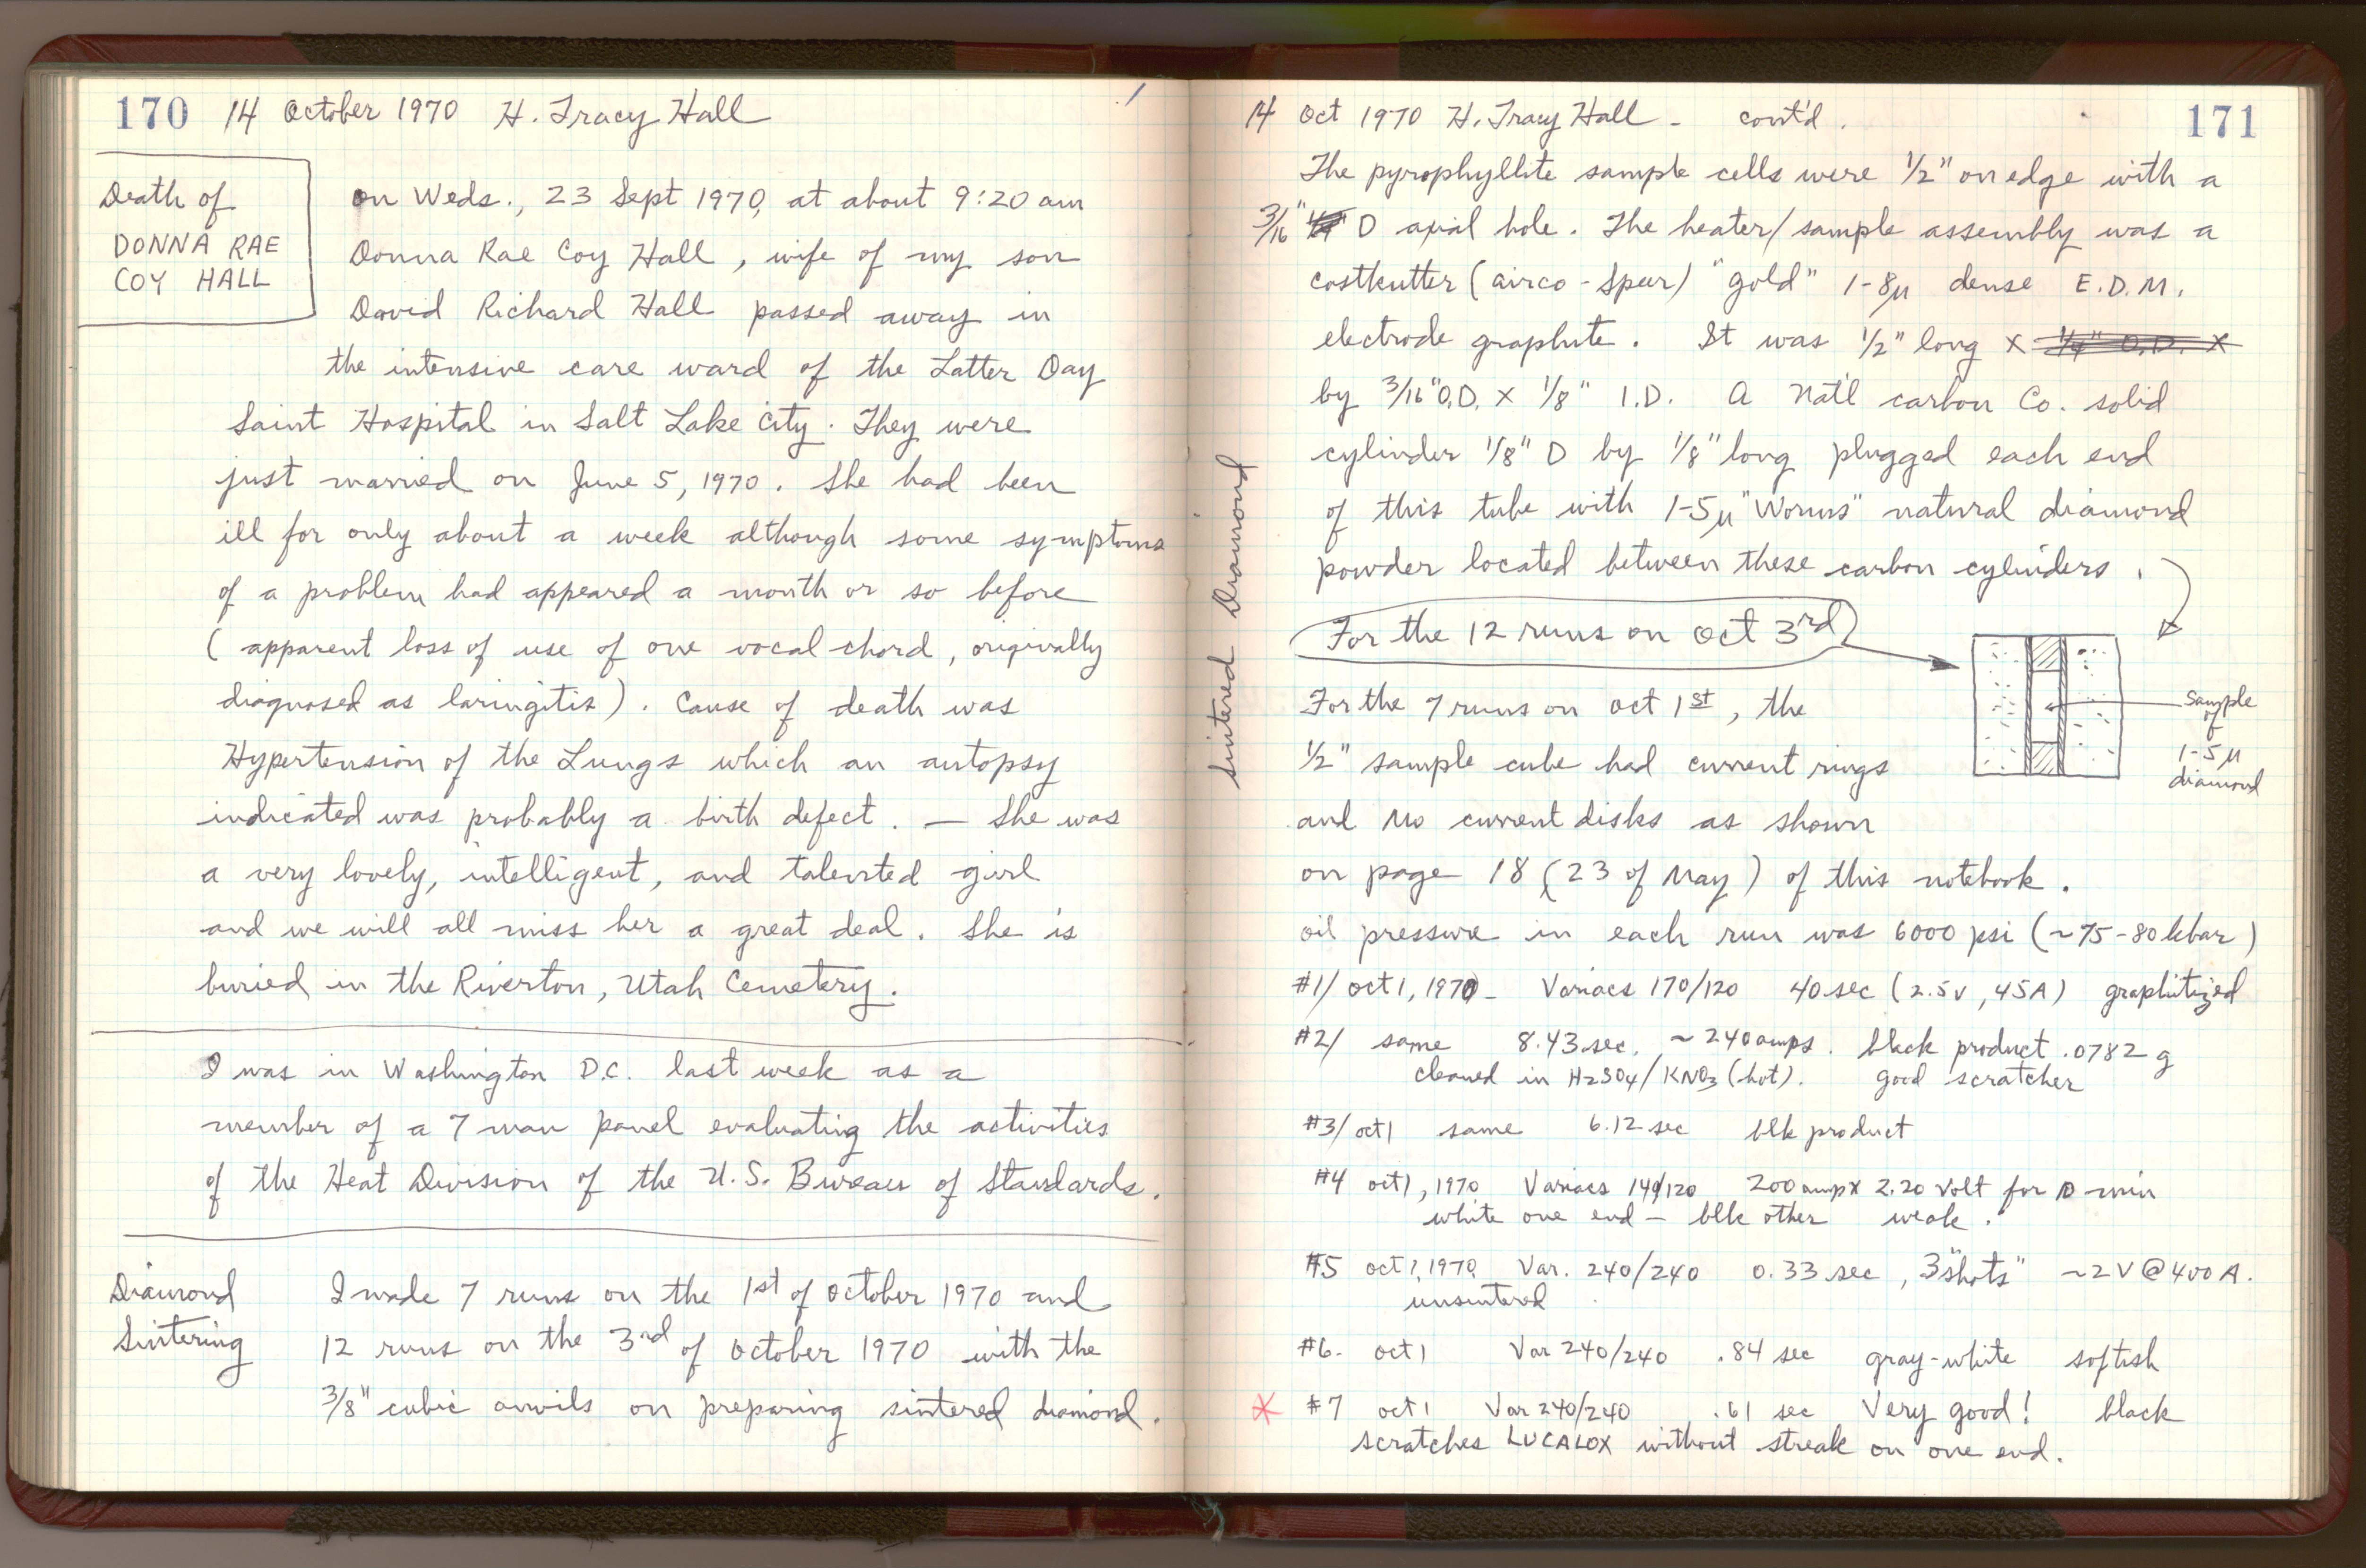 170 14 October 1970 H. Tracy Hall
Death of
DONNA RAE
COY HALL
On Weds., 23 Sept 1970, at about 9:20 am
Donna Rae Coy Hall, wife of my son
David Richard Hall passed away in
the intensive care ward of the Latter Day
Saint Hospital in Salt Lake City. They were
just married on June 5, 1970. She had been
ill for only about a week although some symptoms
of a problem had appeared a month or so before
(apparent loss of use of one vocal chord, originally
diagnosed as laringitis). Cause of death was
Hypertension of the Lungs which an autopsy
indicated was probably a birth defect. — She was
a very lovely, intelligent, and talented girl
and we will all miss her a great deal. She is
buried in the Riverton, Utah Cemetery.
I was in Washington D.C. last week as a
member of a 7 man panel evaluating the activities
of the Heat Division of the U.S. Bureau of Standards.
Diamond
Sintering
I made 7 runs on the 1st of October 1970 and
12 runs on the 3rd of October 1970 with the
3/8" cubic anvils on preparing sintered diamond.
14 Oct 1970 H. Tracy Hall - cont'd. 171
Sintered Diamond
The pyrophyllite sample cells were 1/2" on edge with a
3/16" D axial hole. The heater/sample assembly was a
costkutter (airco-Speer) "gold" 1-8μ dense E.D.M.
electrode graphite. It was 1/2" long x 1/4" O.D. x
by 3/16" O.D. x 1/8" I.D. A Nat'l carbon Co. solid
cylinder 1/8" D by 1/8" long plugged each end
of this tube with 1-5μ "Worms" natural diamond
powder located between these carbon cylinders.
For the 12 runs on Oct 3rd
sample
of
1-5μ
diamond
For the 7 runs on Oct 1st, the
1/2" sample cube had current rings
and Mo current disks as shown
on page 18 (23 of May) of this notebook.
oil pressure in each run was 6000 psi (~75-80 kbar)
#1/ oct 1, 1970 - Variacs 170/120 40 sec (2.5v, 45A) graphitized
#2/ same 8.43 sec. ~240 amps. black product .0782 g
cleaned in H2SO4/KNO3 (hot). good scratcher
#3/ oct 1 same 6.12 sec blk product
#4 oct 1, 1970 Variacs 140/120 200 amp x 2.20 volt for 10 min
white one end - blk other weak.
#5 oct 1, 1970 Var. 240/240 0.33 sec, 3 "shots" ~2V @ 400A.
unsintered
#6. oct 1 Var 240/240 .84 sec gray-white softish
* #7 oct 1 Var 240/240 .61 sec Very good! black
scratches LUCALOX without streak on one end.